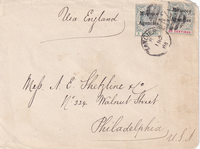 Via England
Morocco Agencies
Morocco Agencies
Messrs A. E. Shetzline & Co
No 324 Walnut Street
Philadelphia
U.S.A